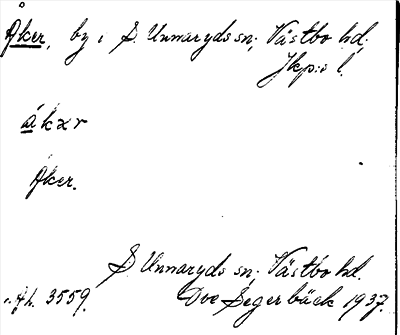 Åker, by i S. Unnaryds sn; Västbo hd,
Jkp:s l.
åkər
Åker.
S. Unnaryds sn; Västbo hd.
Ah. 3559. Ove Segerbäck 1937.